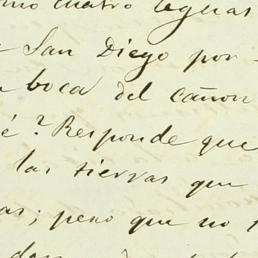 mo cuatro leguas
San Diego por
boca del cañon
é? Responde que
las tierras que
as; pero que no